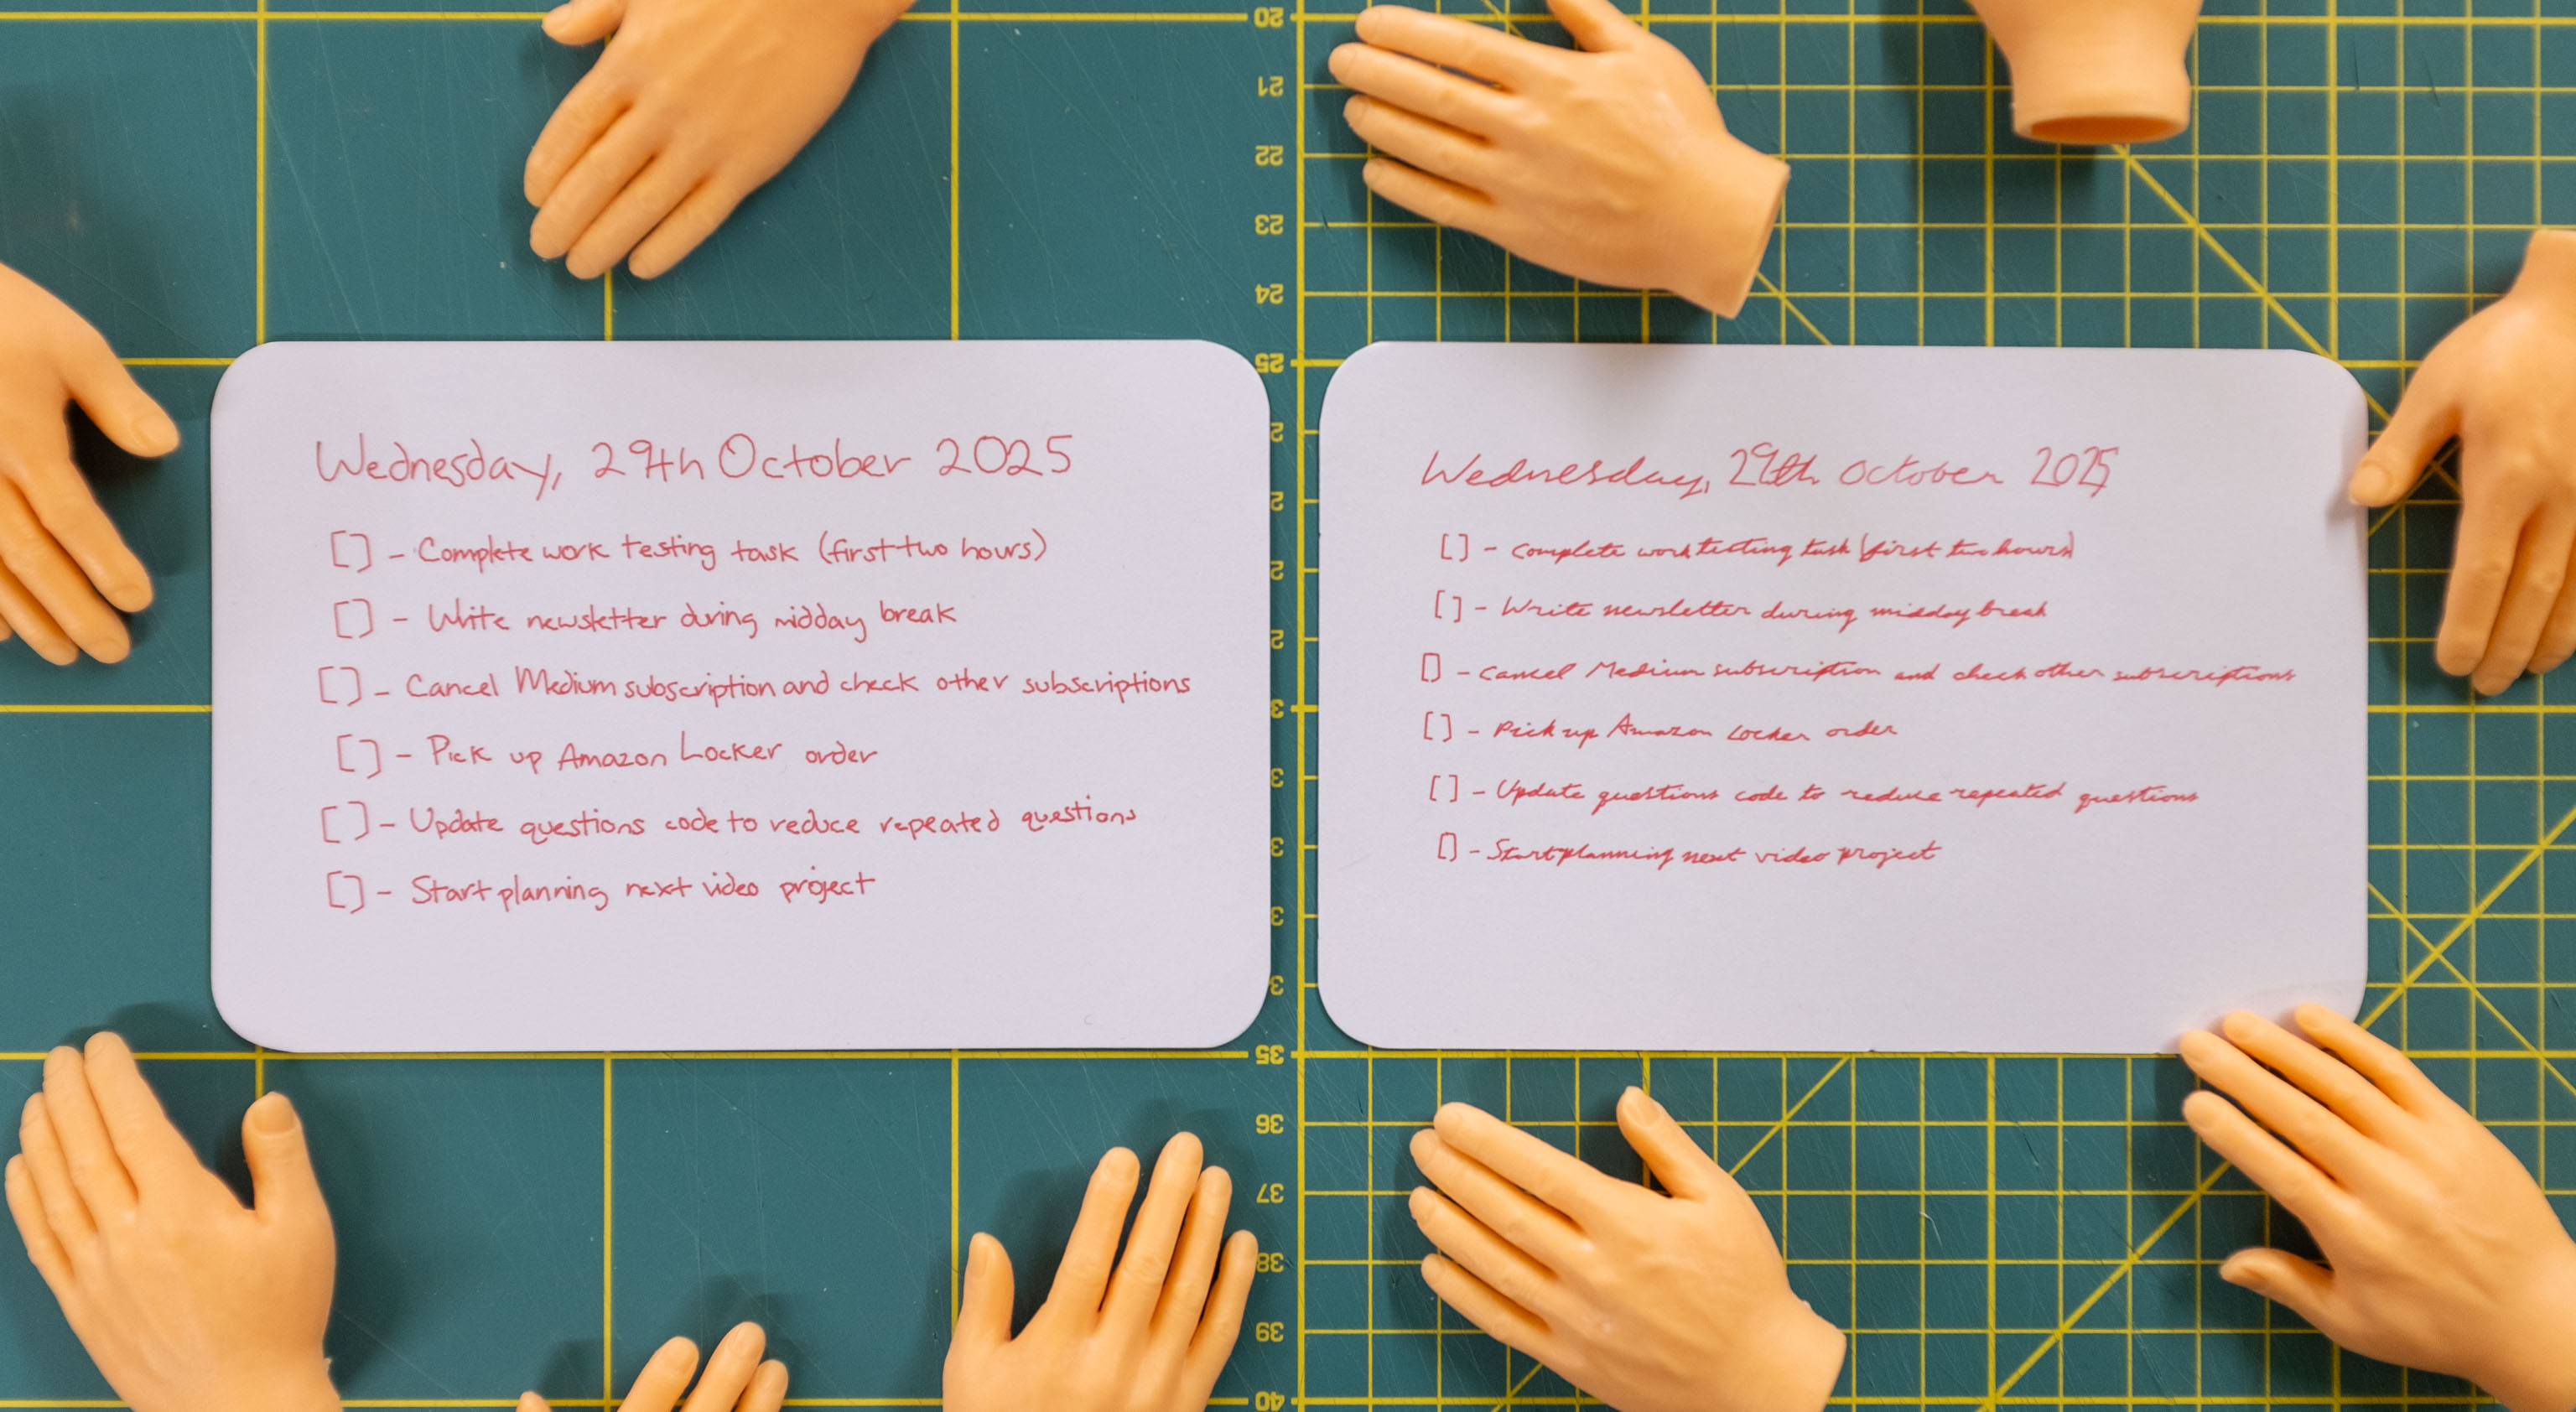 Wednesday, 29th October 2025
[] - Complete work testing task (first two hours)
[] - Write newsletter during midday break
[] - Cancel Medium subscription and check other subscriptions
[] - Pick up Amazon Locker order
[] - Update questions code to reduce repeated questions
[] - Start planning next video project
Wednesday, 29th October 2025
[] - Complete work testing task (first two hours)
[] - Write newsletter during midday break
[] - Cancel Medium subscription and check other subscriptions
[] - Pick up Amazon Locker order
[] - Update questions code to reduce repeated questions
[] - Start planning next video project
20
21
22
23
24
25
35
36
37
38
39
40